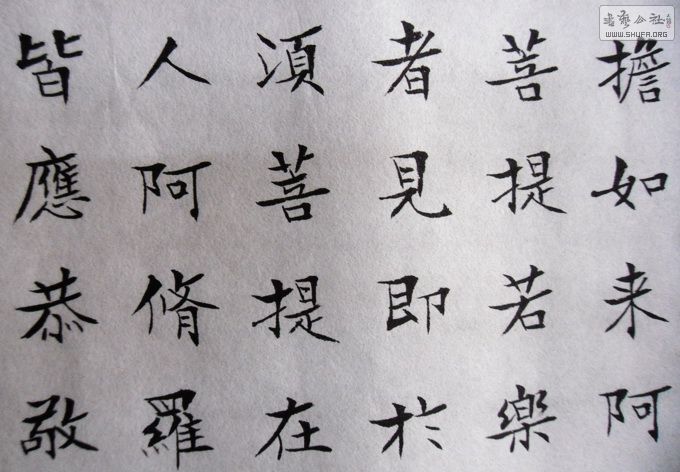 擔如来阿
菩提若樂
者見即於
須菩提在
人阿脩羅
皆應恭敬
書藝公社
WWW.SHUFA.ORG